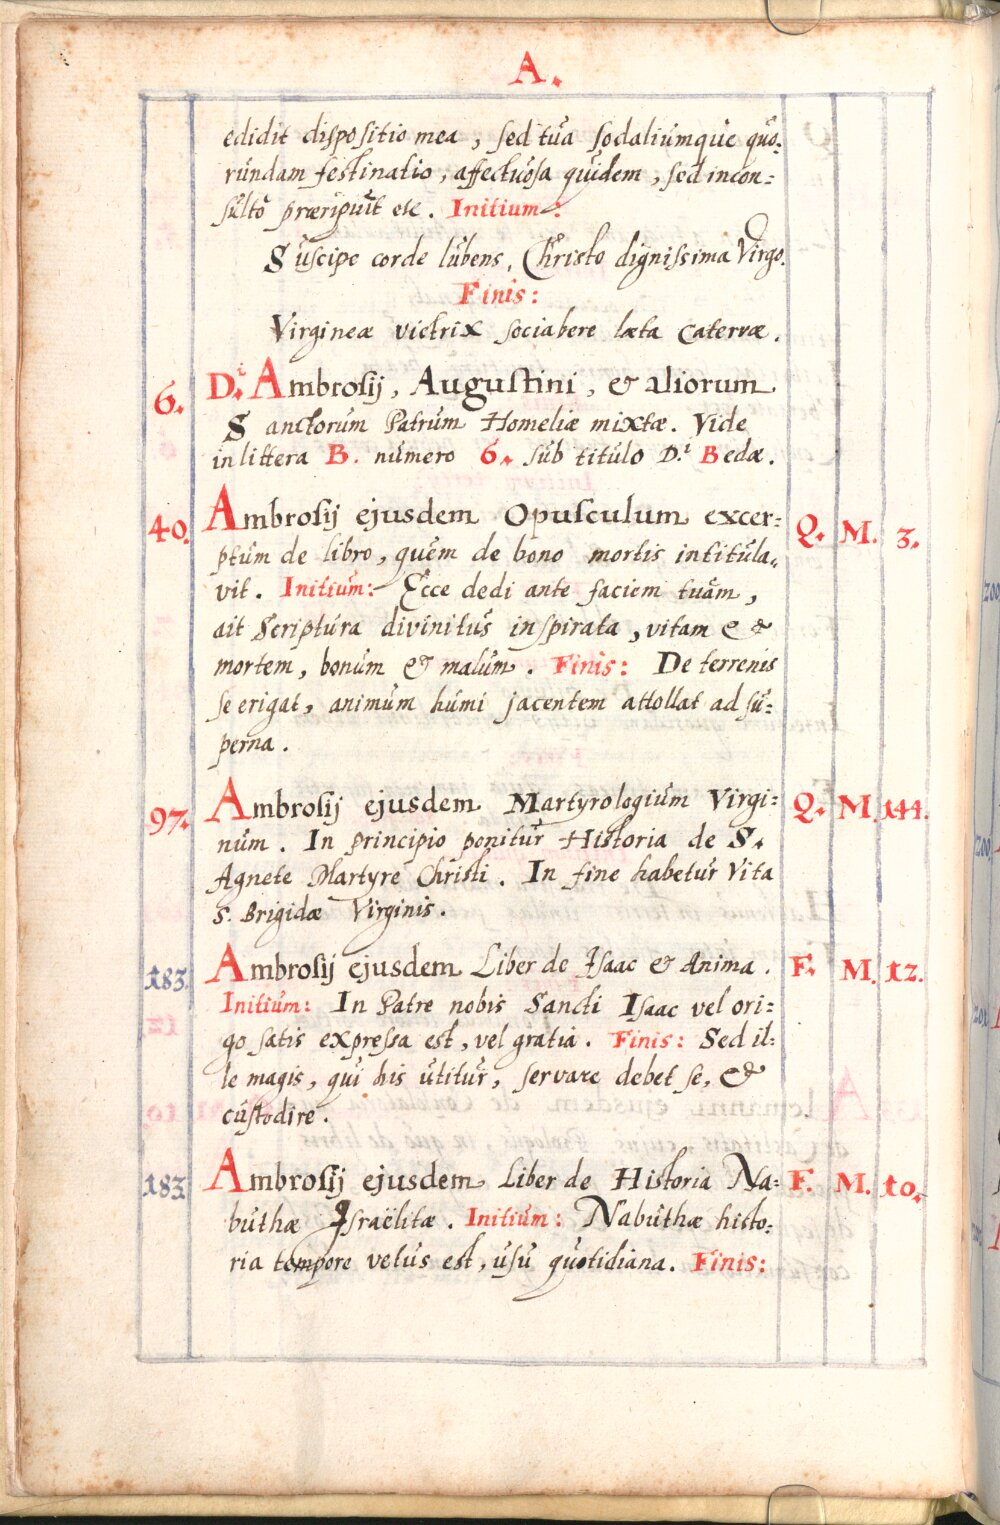 A.
edidit dispositio mea, sed tua sodaliumque quo-
rundam festinatio, affectuosa quidem, sed incon=
sulto præripuit etc. Initium:
Suscipe corde lubens, Christo dignissima Virgo.
Finis:
Virgineæ victrix sociabere læta catervæ.
6. D.i Ambrosij, Augustini, & aliorum
Sanctorum Patrum Homeliæ mixtæ. Vide
in littera B. numero 6. sub titulo D.i Bedæ.
40. Ambrosij ejusdem Opusculum excer= Q. M. 3.
ptum de libro, quem de bono mortis intitula„
vit. Initium: Ecce dedi ante faciem tuam,
ait Scriptura divinitus inspirata, vitam & &
mortem, bonum & malum. Finis: De terrenis
se erigat, animum humi jacentem attollat ad su=
perna.
97. Ambrosij ejusdem Martyrologium Virgi= Q. M. 144.
num. In principio ponitur Historia de S.
Agnete Martyre Christi. In fine habetur Vita
S. Brigidæ Virginis.
183. Ambrosij ejusdem Liber de Isaac & Anima. F. M. 12.
Initium: In Patre nobis Sancti Isaac vel ori=
go satis expressa est, vel gratia. Finis: Sed il=
le magis, qui his utitur, servare debet se, &
custodire.
183 Ambrosij ejusdem Liber de Historia Na= F. M. 10.
buthæ Israëlitæ. Initium: Nabuthæ histo=
ria tempore vetus est, usu quotidiana. Finis: